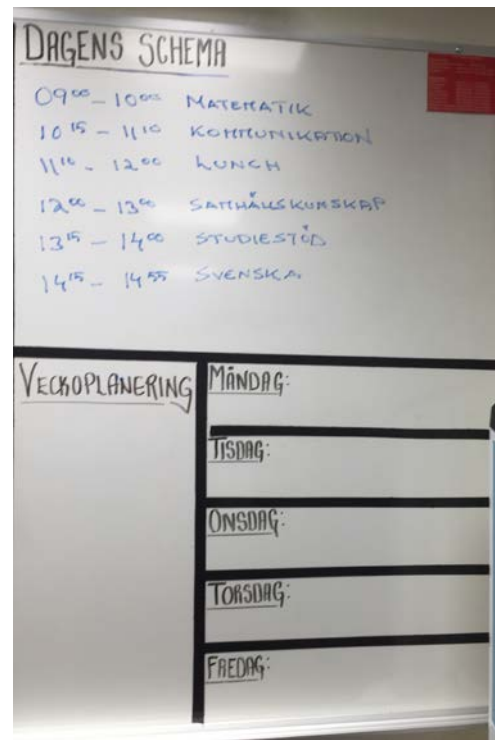 DAGENS SCHEMA
09⁰⁰ - 10⁰⁰ MATEMATIK
10¹⁵ - 11¹⁰ KOMMUNIKATION
11¹⁰ - 12⁰⁰ LUNCH
12⁰⁰ - 13⁰⁰ SAMHÄLLSKUNSKAP
13¹⁵ - 14⁰⁰ STUDIESTÖD
14¹⁵ - 14⁵⁵ SVENSKA
VECKOPLANERING
MÅNDAG:
TISDAG:
ONSDAG:
TORSDAG:
FREDAG: